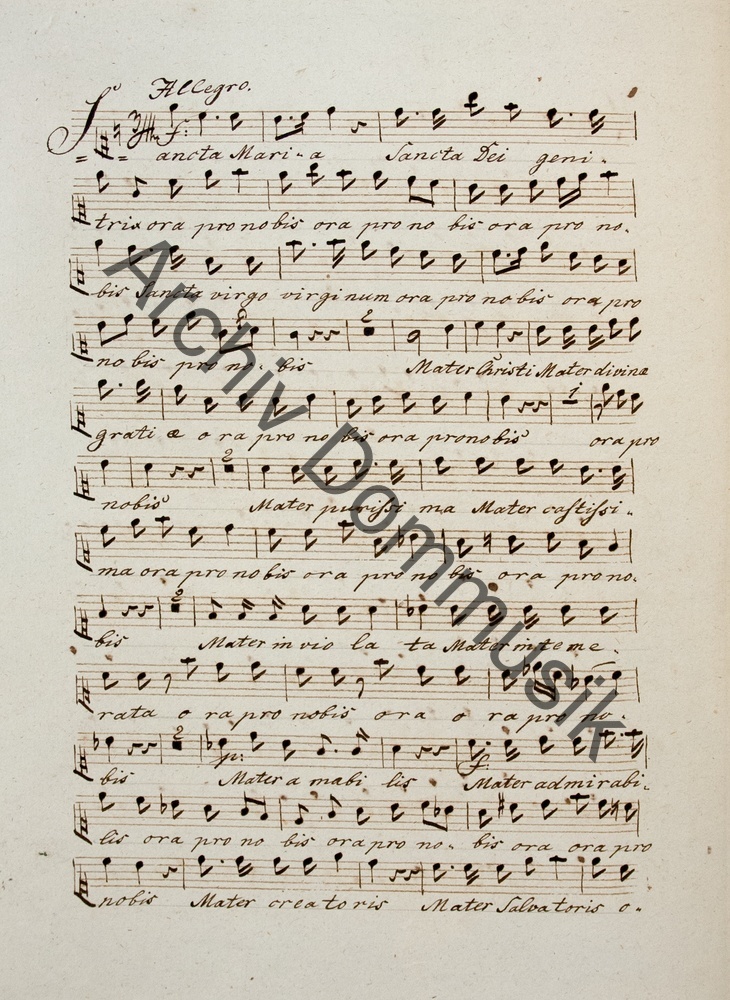 Allegro.
f:
Sancta Mari-a Sancta Dei geni-
trix ora pro nobis ora pro no bis ora pro no-
bis Sancta virgo virginum ora pro nobis ora pro
no bis pro no- bis Mater Christi Mater divinæ
2
grati æ o ra pro no bis ora pro nobis ora pro
1
nobis Mater purissi ma Mater castissi-
2
ma ora pro nobis ora pro no bis ora pro no-
bis Mater in vio la ta Mater inteme-
2
rata o ra pro nobis ora o ra pro no-
bis Mater a mabi lis Mater admirabi-
2
p: f:
lis ora pro no bis ora pro no- bis ora ora pro
nobis Mater creatoris Mater Salvatoris o-
Archiv Dommusik